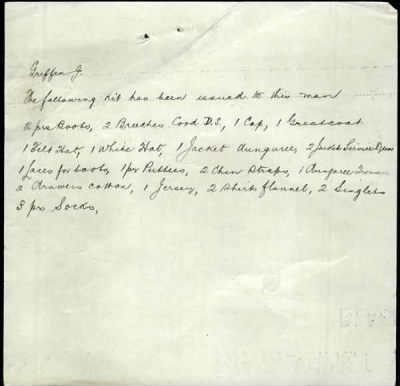 Griffen J.
The following kit has been issued to this man
2 prs Boots, 2 Breeches Cord D.S., 1 Cap, 1 Greatcoat
1 Felt Hat, 1 White Hat, 1 Jacket dungaree, 2 Jackets Service Dress
1 Laces for boots, 1 pr Puttees, 2 Chin Straps, 1 Dungaree Trousers
2 drawers cotton, 1 Jersey, 2 Shirts flannel, 2 Singlets
3 prs Socks,